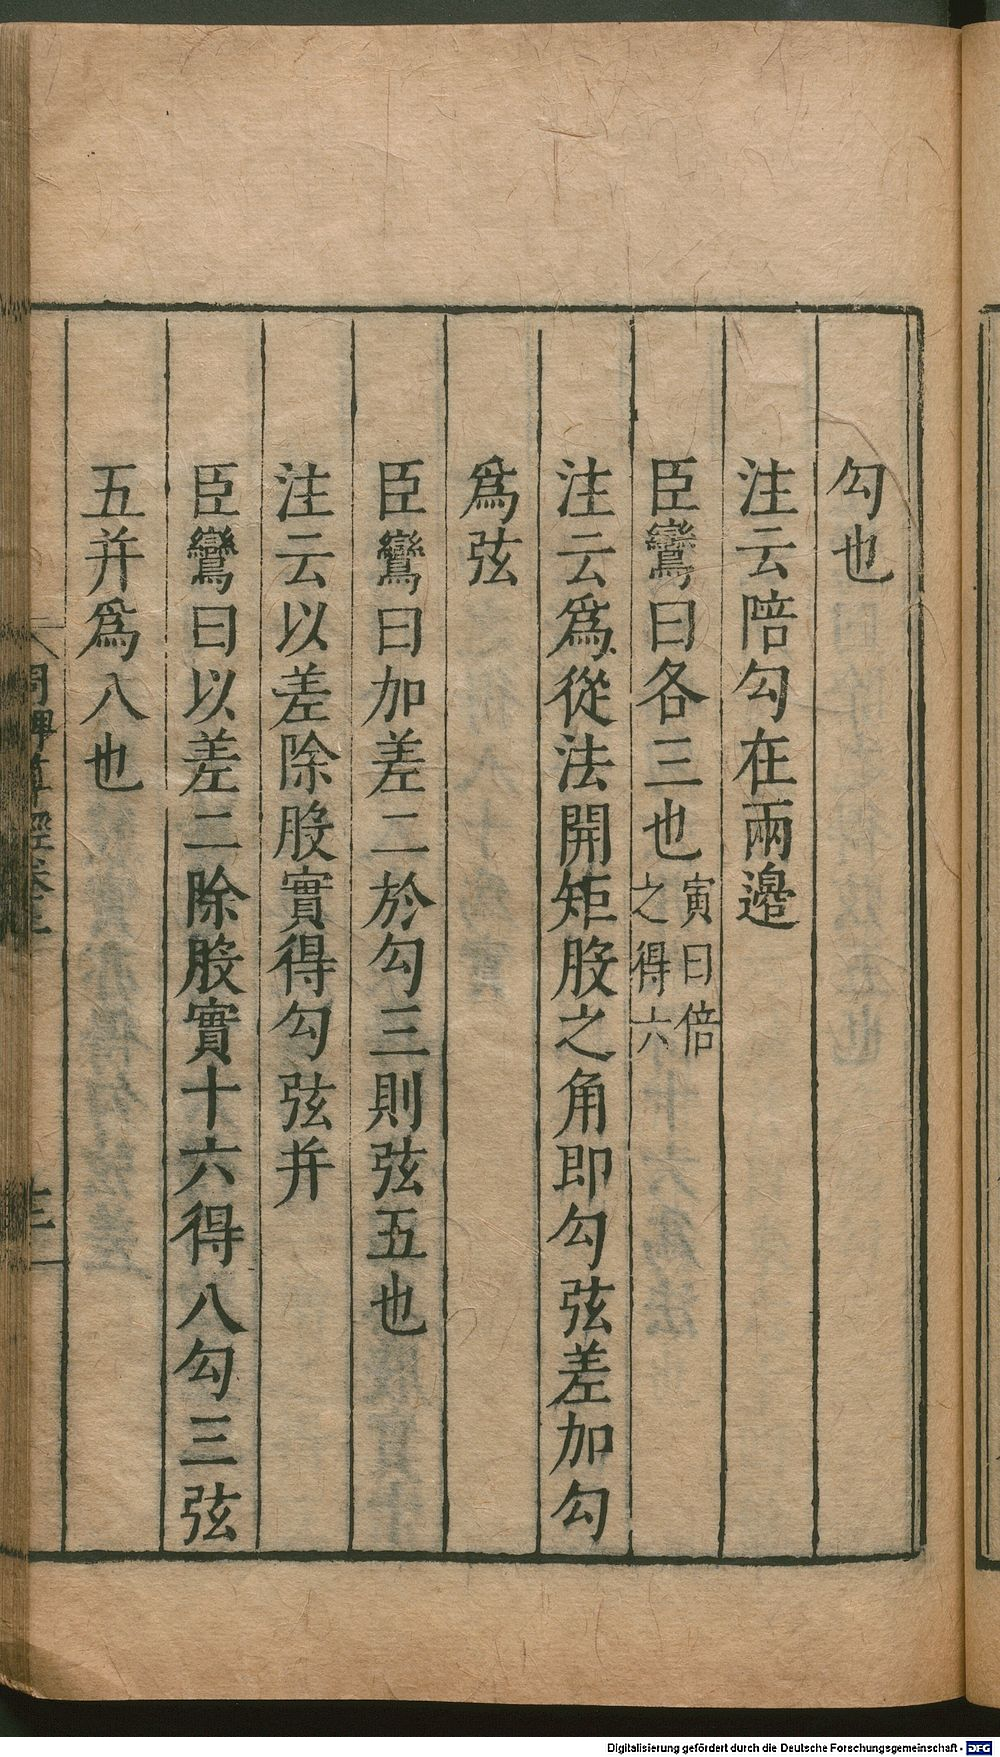 勾也
注云陪勾在兩邊
臣鸞曰各三也寅曰倍
之得六
注云爲從法開矩股之角即勾弦差加勾
爲弦
臣鸞曰加差二於勾三則弦五也
注云以差除股實得勾弦并
臣鸞曰以差二除股實十六得八勾三弦
五并爲八也
周髀算經卷上
Digitalisierung gefördert durch die Deutsche Forschungsgemeinschaft - DFG